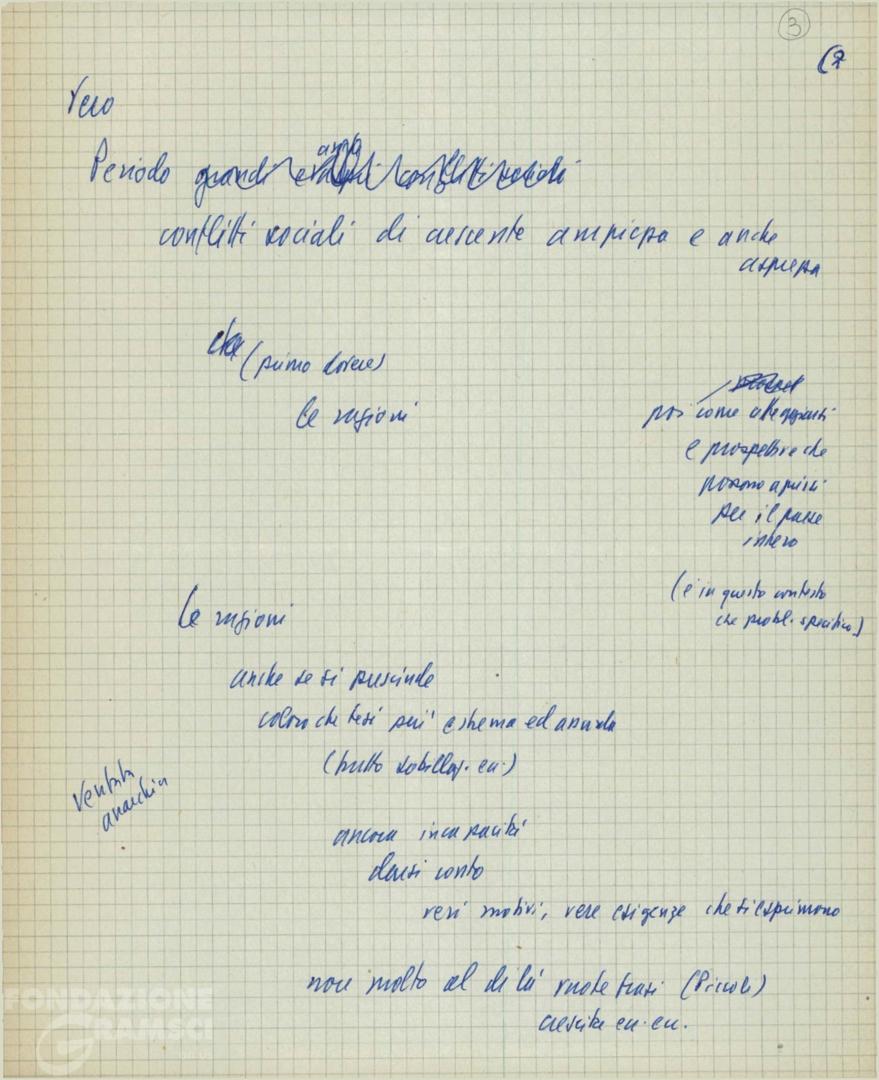 3
Vero
Periodo grandi
conflitti sociali di crescente ampiezza e anche
asprezza
(primo dovere)
le ragioni
poi come atteggiarsi
e prospettive che
possono aprirsi
per il paese
intero
(è in questo contesto
che probl. specifico)
le ragioni
anche se si prescinde
coloro che tesi più estrema ed assurda
(tutto sobillaz. ecc.)
Ventata
anarchia
ancora incapacità
darsi conto
veri motivi, vere esigenze che si esprimono
non molto al di là vuote frasi (Piccoli)
crescita ecc. ecc.
FONDAZIONE
GRAMSCI